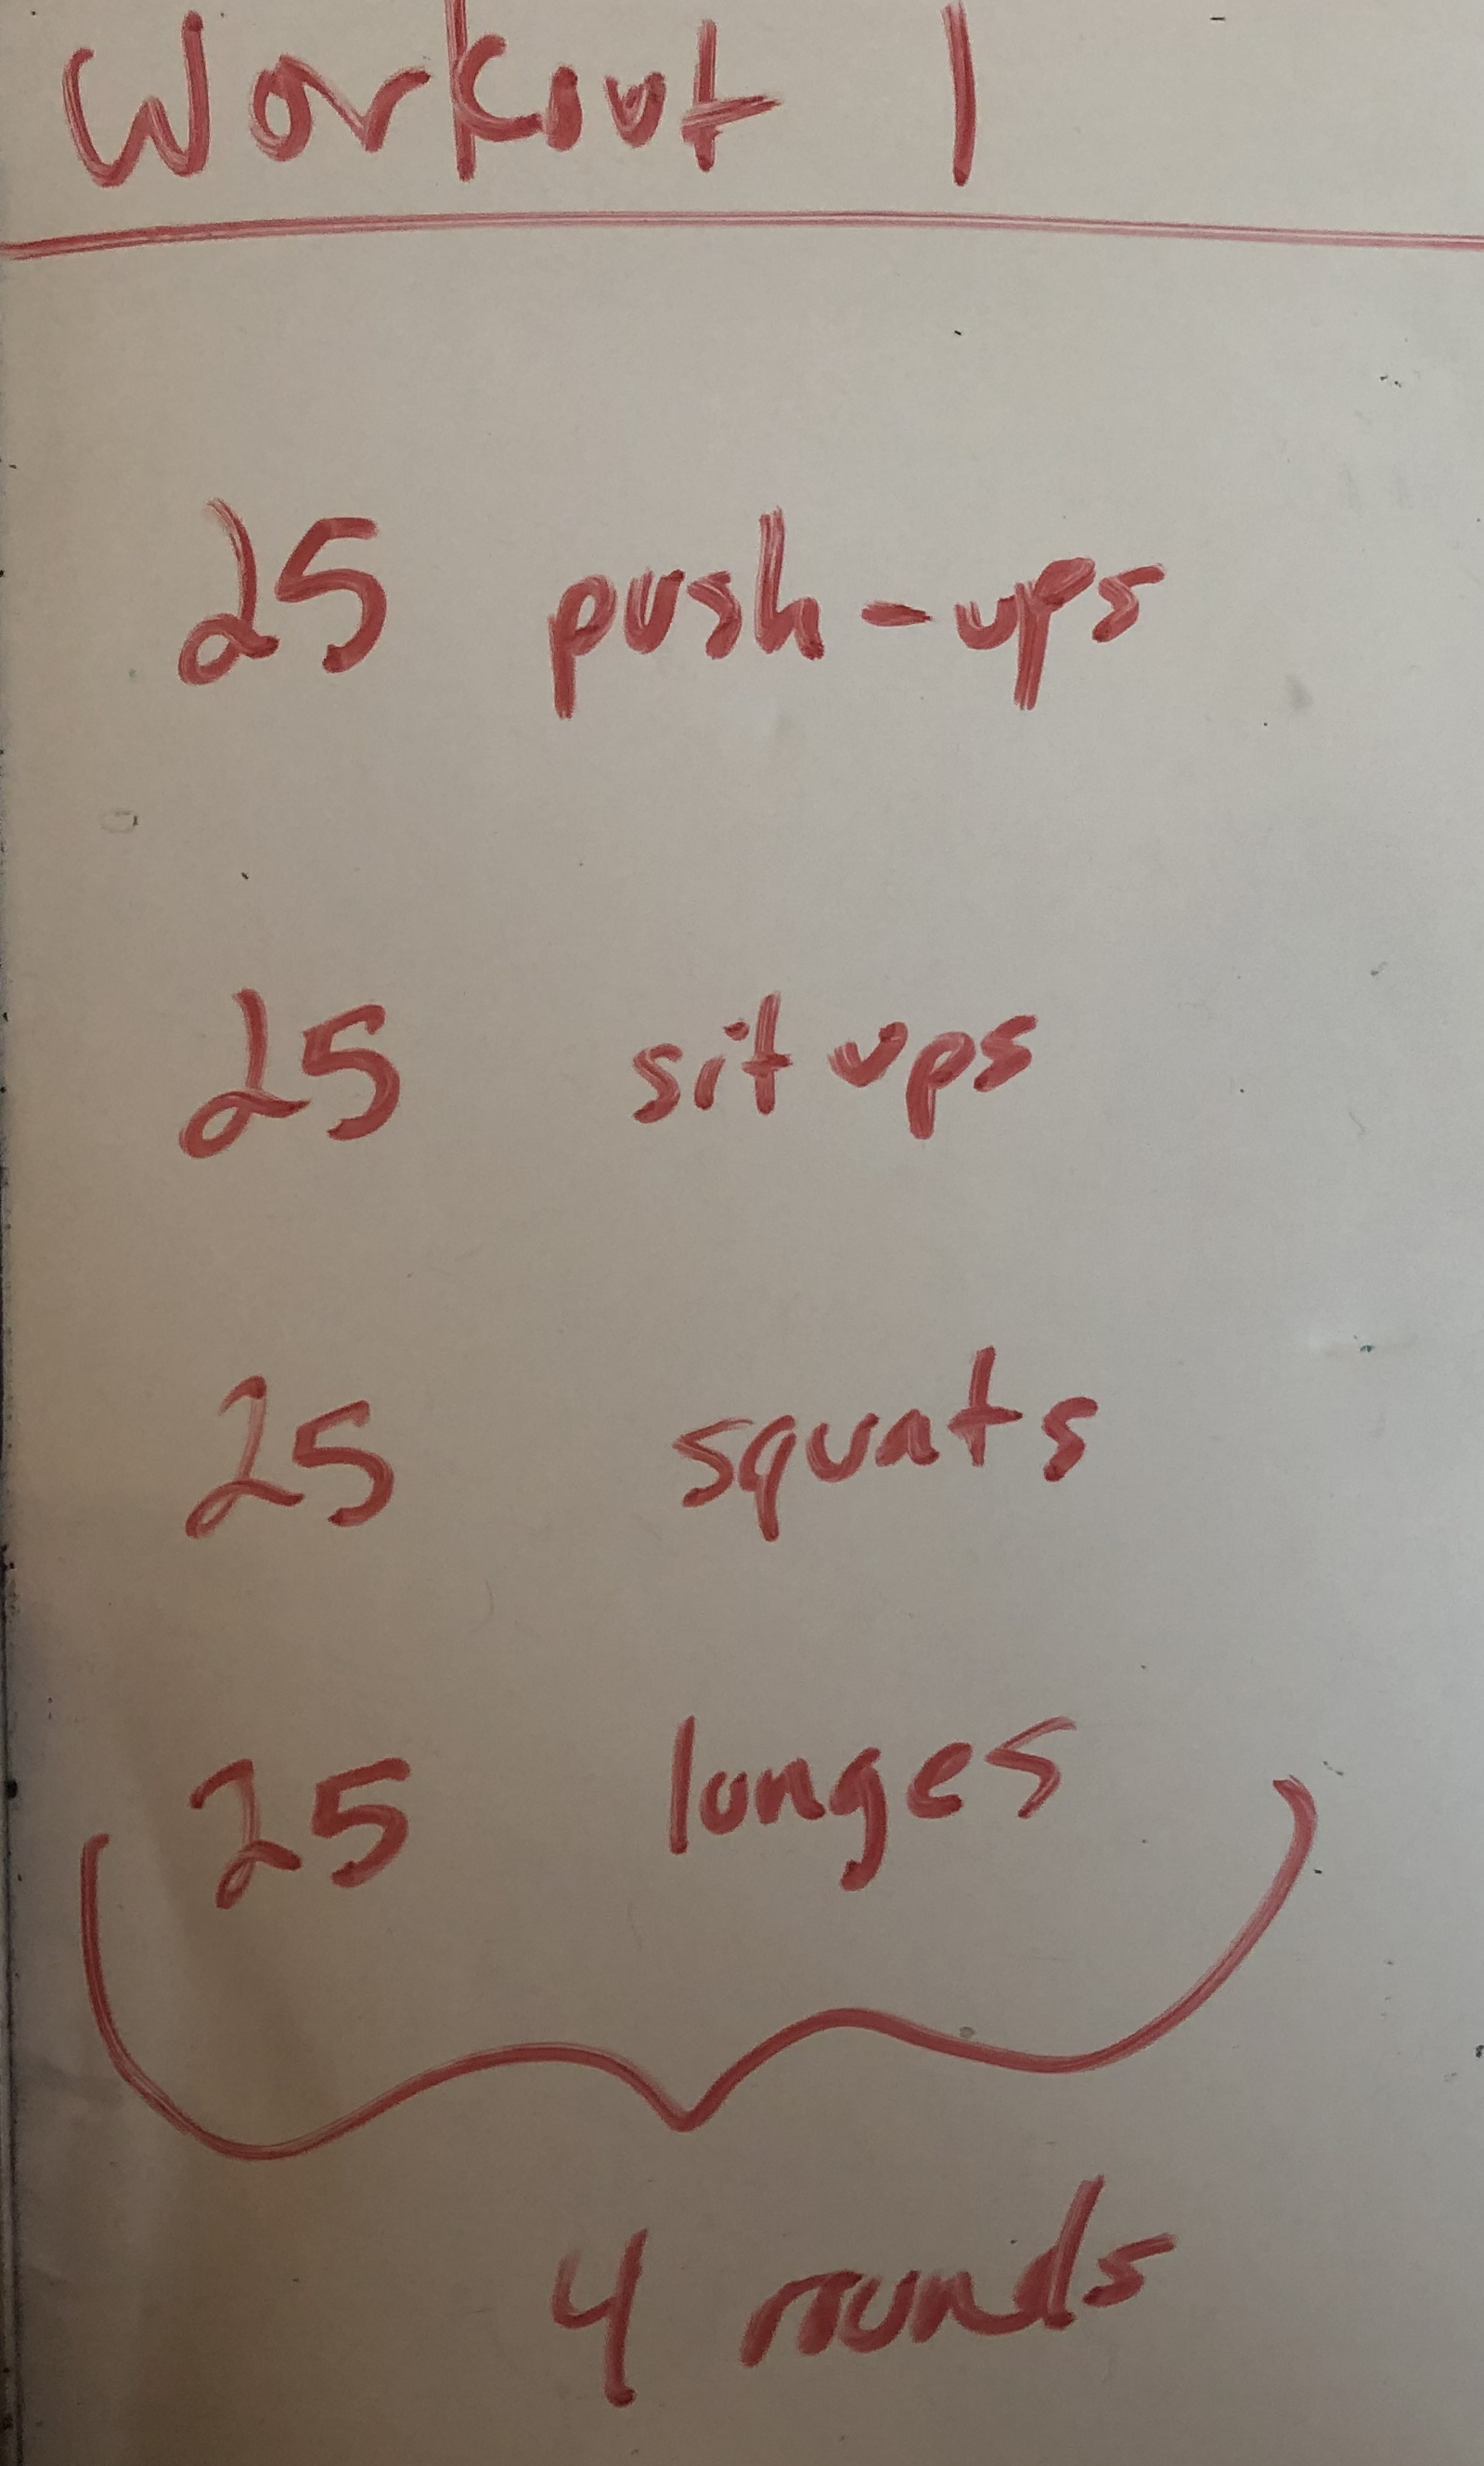 Workout 1
25 push-ups
25 sit ups
25 squats
25 lunges
4 rounds